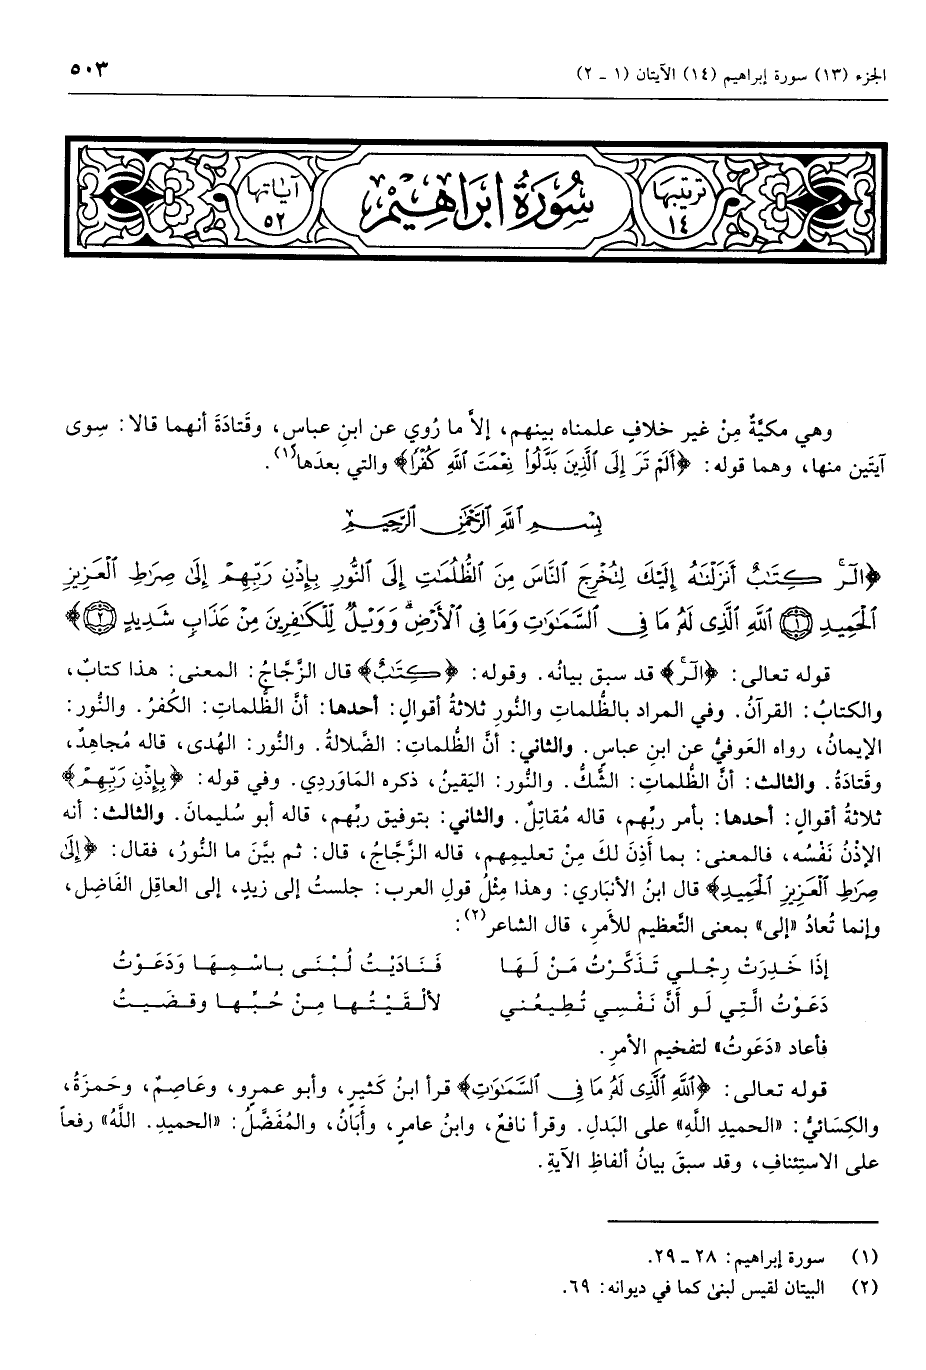 الجزء (١٣) سورة إبراهيم (١٤) الآيتان (١ - ٢)
٥٠٣
ترتيبها ١٤
سُورَةُ ابرَاهِيمَ
آياتها ٥٢
وهي مكيَّةٌ مِنْ غير خلافٍ علمناه بينهم، إلاَّ ما رُوي عن ابنِ عباسٍ، وقَتادَةَ أنهما قالا: سِوى
آيتَين منها، وهما قوله: ﴿أَلَمْ تَرَ إِلَى الَّذِينَ بَدَّلُواْ نِعْمَتَ اللَّهِ كُفْرًا﴾ والتي بعدَها(١).
بِسْمِ اللَّهِ الرَّحْمَٰنِ الرَّحِيمِ
﴿الٓرۚ كِتَٰبٌ أَنزَلْنَٰهُ إِلَيْكَ لِتُخْرِجَ النَّاسَ مِنَ الظُّلُمَٰتِ إِلَى النُّورِ بِإِذْنِ رَبِّهِمْ إِلَىٰ صِرَٰطِ الْعَزِيزِ
الْحَمِيدِ ۝١ اللَّهِ الَّذِى لَهُۥ مَا فِى السَّمَٰوَٰتِ وَمَا فِى الْأَرْضِۗ وَوَيْلٌ لِّلْكَٰفِرِينَ مِنْ عَذَابٍ شَدِيدٍ ۝٢﴾
قوله تعالى: ﴿الٓرۚ﴾ قد سبق بيانُه. وقوله: ﴿كِتَٰبٌ﴾ قال الزَّجَّاجُ: المعنى: هذا كتابٌ،
والكتابُ: القرآنُ. وفي المراد بالظُّلماتِ والنُّورِ ثلاثةُ أقوالٍ: أحدها: أنَّ الظُّلماتِ: الكُفرُ. والنُّور:
الإيمانُ، رواه العَوفيُّ عن ابنِ عباسٍ. والثاني: أنَّ الظُّلماتِ: الضَّلالةُ. والنُّور: الهُدى، قاله مُجاهِدٌ،
وقَتادَةُ. والثالث: أنَّ الظُّلماتِ: الشَّكُّ. والنُّور: اليَقينُ، ذكره المَاوَردِي. وفي قوله: ﴿بِإِذْنِ رَبِّهِمْ﴾
ثلاثةُ أقوالٍ: أحدها: بأمرِ ربِّهم، قاله مُقاتِلٌ. والثاني: بتوفيقِ ربِّهم، قاله أبو سُليمانَ. والثالث: أنه
الإذْنُ نَفْسُه، فالمعنى: بما أَذِنَ لكَ مِنْ تعليمِهم، قاله الزَّجَّاجُ، قال: ثم بيَّنَ ما النُّورُ، فقال: ﴿إِلَىٰ
صِرَٰطِ الْعَزِيزِ الْحَمِيدِ﴾ قال ابنُ الأنبَاري: وهذا مِثْلُ قولِ العرب: جلستُ إلى زيدٍ، إلى العاقِلِ الفَاضِل،
وإنما تُعادُ «إلى» بمعنى التَّعظيم للأمرِ، قال الشاعر(٢):
إذَا خَدِرَتْ رِجْلـي تَـذَكَّرْتُ مَـنْ لَـهَا فَـنَـادَيْـتُ لُـبْـنَـى بـاسْـمِـهَـا وَدَعَـوْتُ
دَعَـوْتُ الَّـتِـي لَـو أَنَّ نَـفْـسِـي تُـطِـيـعُـنـي لأَلْـقَـيْـتُـهـا مِـنْ حُـبِّـهـا وقـضَـيـتُ
فأعاد «دَعَوتُ» لتفخيمِ الأمرِ.
قوله تعالى: ﴿اللَّهِ الَّذِى لَهُۥ مَا فِى السَّمَٰوَٰتِ﴾ قرأ ابنُ كَثيرٍ، وأبو عمرو، وعَاصِمٌ، وحَمزَةُ،
والكِسَائيُّ: «الحميدِ اللَّهِ» على البَدلِ. وقرأ نافعٌ، وابنُ عامرٍ، وأَبَانُ، والمُفَضَّلُ: «الحميدِ. اللَّهُ» رفعاً
على الاستِئنافِ، وقد سبقَ بيانُ ألفاظِ الآيةِ.
(١) سورة إبراهيم: ٢٨ ـ ٢٩.
(٢) البيتان لقيس لبنىٰ كما في ديوانه: ٦٩.